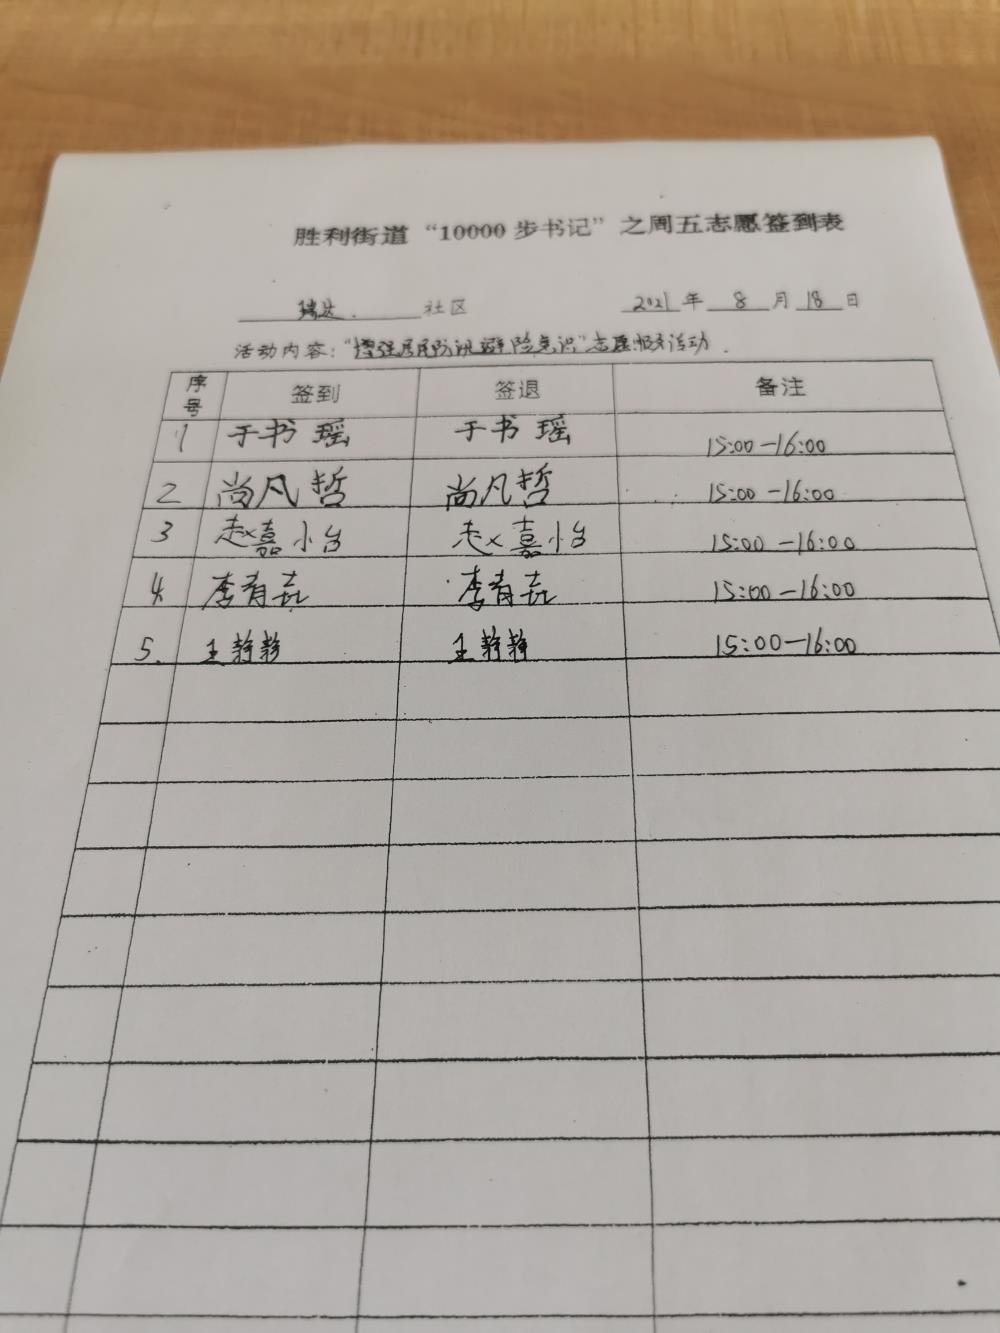 胜利街道“10000步书记”之周五志愿签到表
瑞达 社区 2021年 8 月 18 日
活动内容：“增强居民防汛避险意识”志愿服务活动.
序号 签到 签退 备注
1 于书瑶 于书瑶 15:00-16:00
2 尚凡哲 尚凡哲 15:00-16:00
3 赵嘉怡 赵嘉怡 15:00-16:00
4. 李有 李有 15:00-16:00
5. 王静静 王静静 15:00-16:00